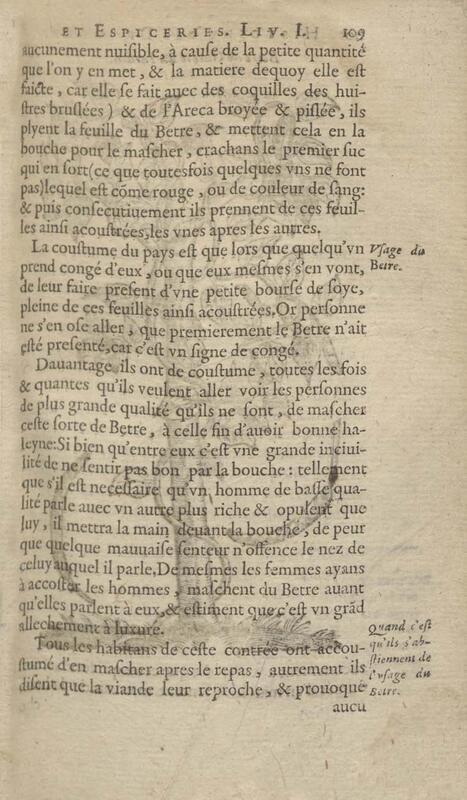 ET ESPICERIES. LIV. I. 109
aucunement nuisible, à cause de la petite quantité
que l'on y en met, & la matiere dequoy elle est
faicte, car elle se fait auec des coquilles des hui-
stres bruslées) & de l'Areca broyée & pislée, ils
plyent la feuille du Betre, & mettent cela en la
bouche pour le mascher, crachans le premier suc
qui en sort (ce que toutesfois quelques vns ne font
pas) lequel est cõme rouge, ou de couleur de sang:
& puis consecutiuement ils prennent de ces feuil-
les ainsi acoustrées, les vnes apres les autres.
La coustume du pays est que lors que quelqu'vn
prend congé d'eux, ou que eux mesmes s'en vont,
de leur faire present d'vne petite bourse de soye,
pleine de ces feuilles ainsi acoustrées, Or personne
ne s'en ose aller, que premierement le Betre n'ait
esté presenté, car c'est vn signe de congé.
Vsage du
Betre.
Dauantage ils ont de coustume, toutes les fois
& quantes qu'ils veulent aller voir les personnes
de plus grande qualité qu'ils ne sont, de mascher
ceste sorte de Betre, à celle fin d'auoir bonne ha-
leyne: Si bien qu'entre eux c'est vne grande inciui-
lité de ne sentir pas bon par la bouche: tellement
que s'il est necessaire qu'vn homme de basse qua-
lité parle auec vn autre plus riche & opulent que
luy, il mettra la main deuant la bouche, de peur
que quelque mauuaise senteur n'offence le nez de
celuy auquel il parle, De mesmes les femmes ayans
à accoster les hommes, maschent du Betre auant
qu'elles parlent à eux, & estiment que c'est vn grãd
allechement à luxure.
Tous les habitans de ceste contrée ont accou-
stumé d'en mascher apres le repas, autrement ils
disent que la viande leur reproche, & prouoque
Quand c'est
qu'ils s'ab-
stiennent de
l'vsage du
Betre.
aucu